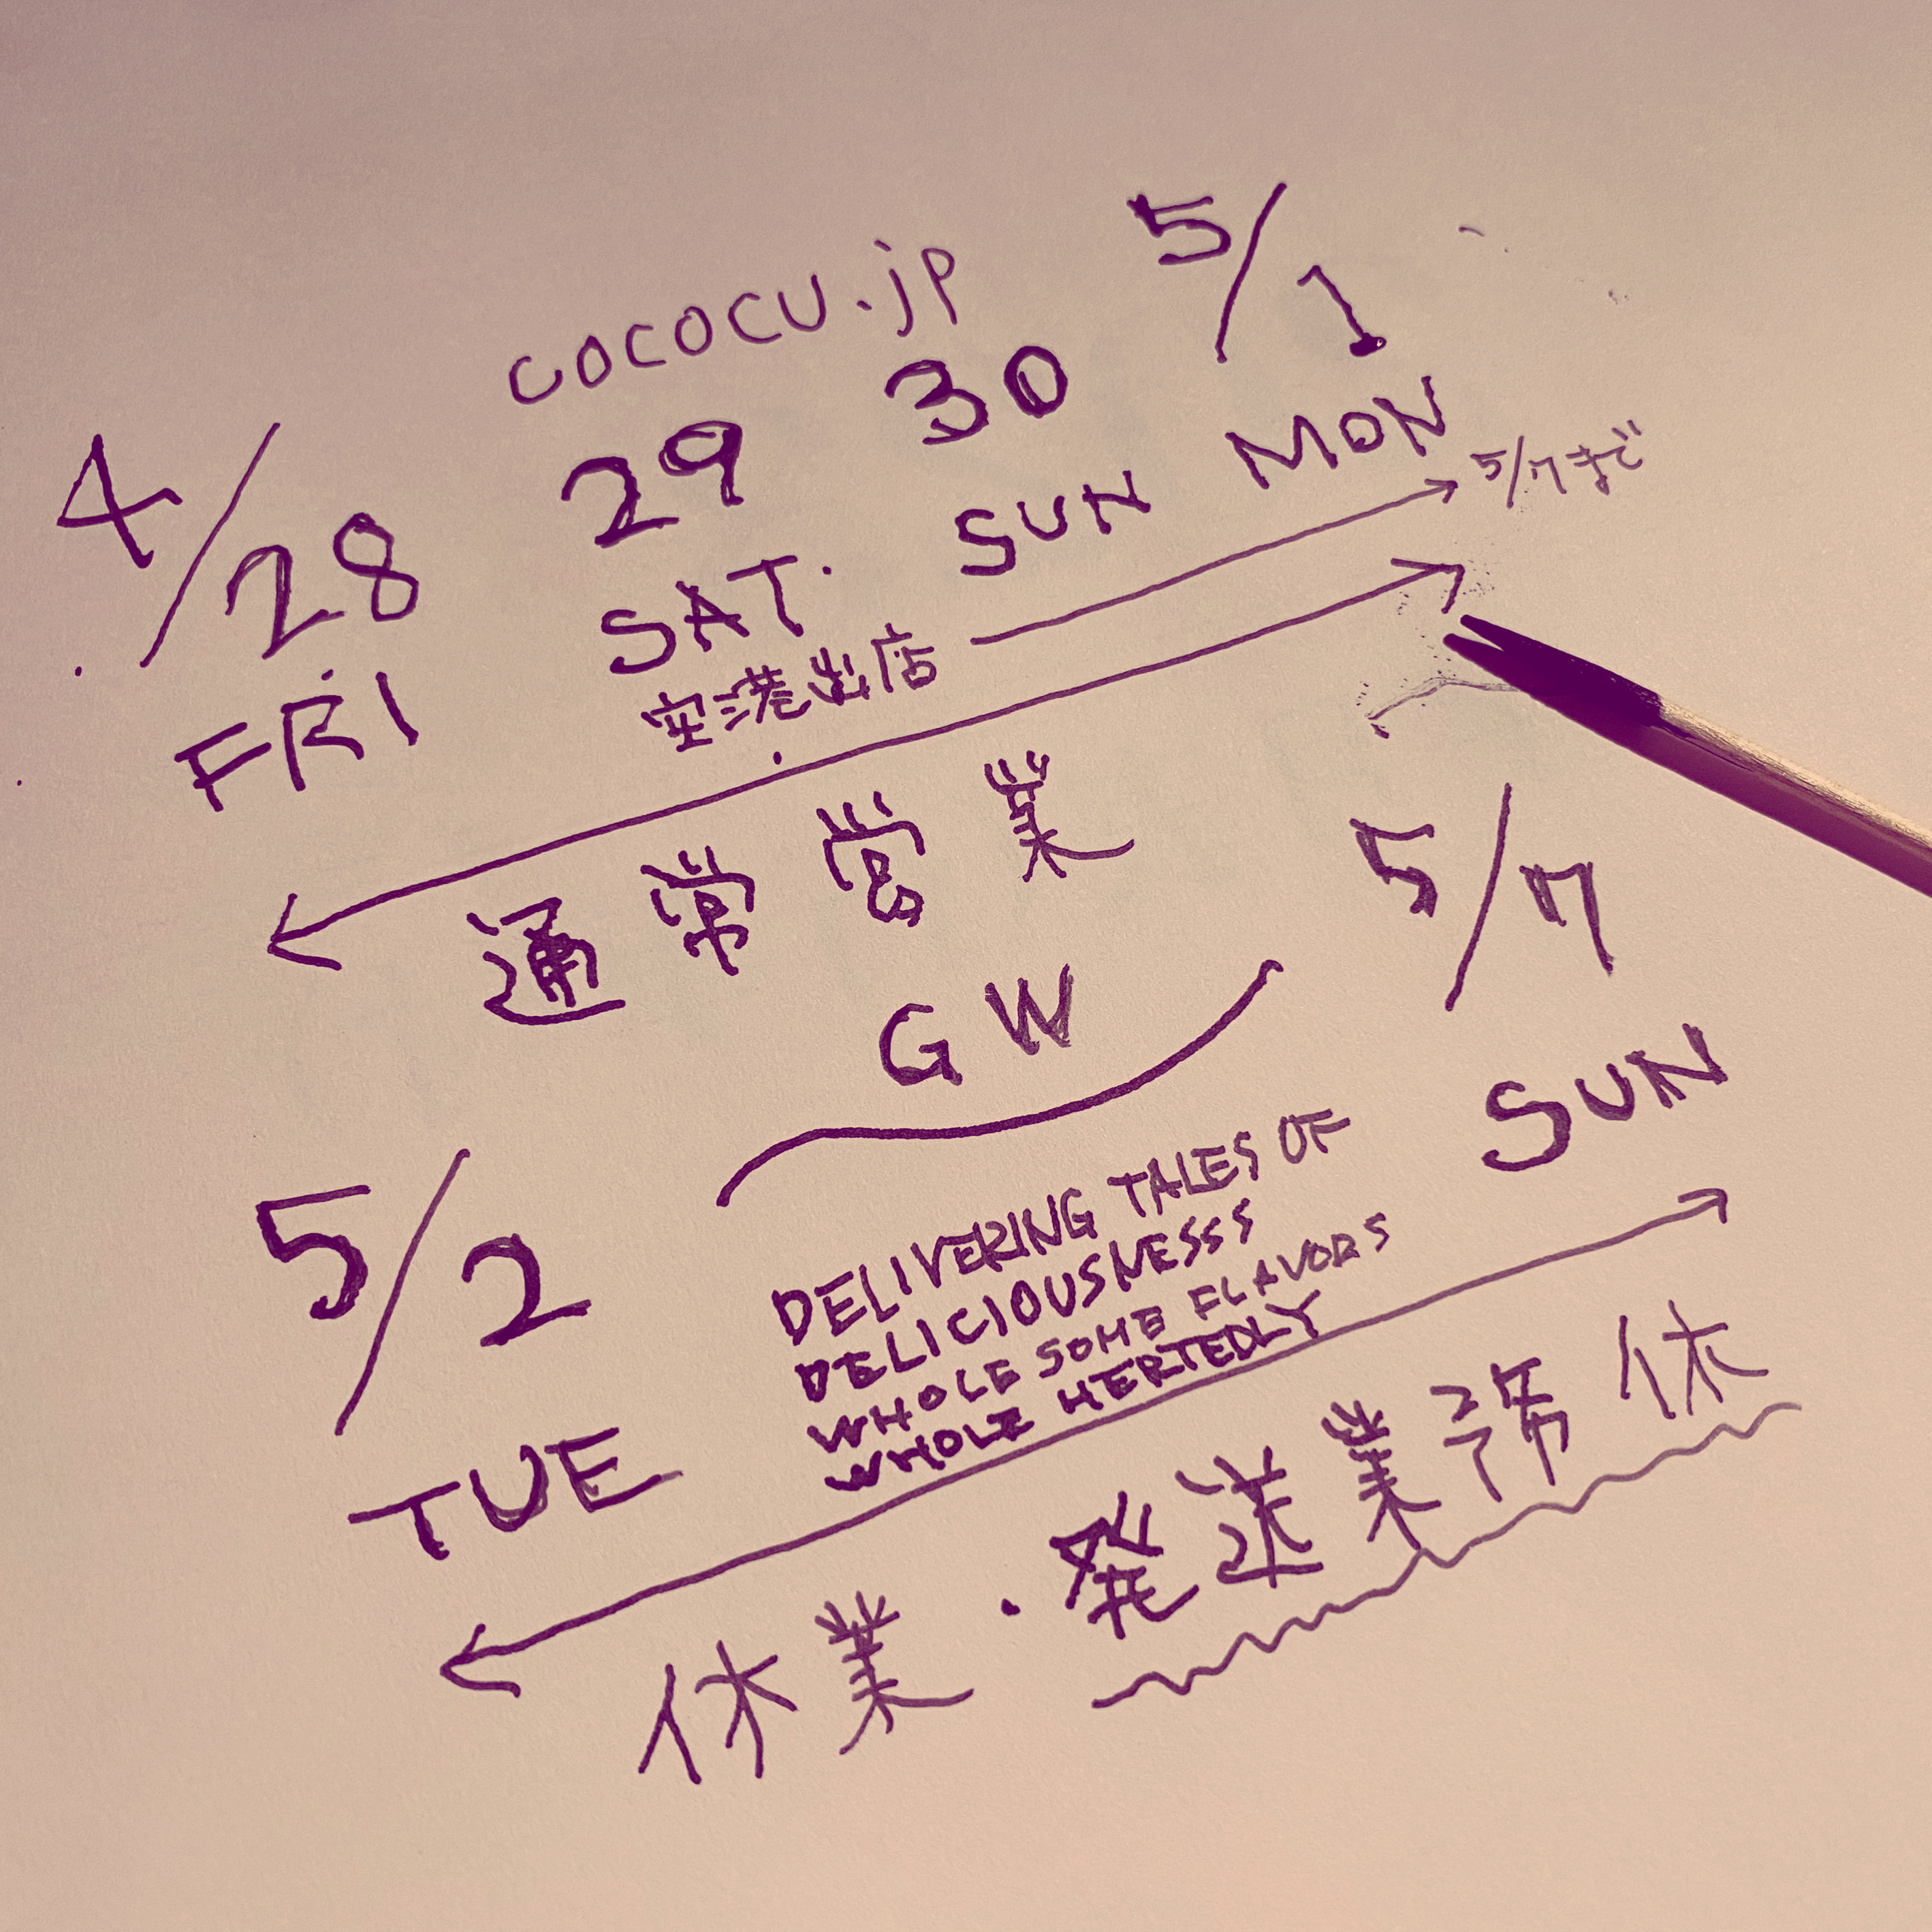 cococu.jp
4/28 29 30 5/1
FRI SAT. SUN MON
空港出店 → 5/7まで
通常営業
GW
5/2 5/7
TUE SUN
DELIVERING TALES OF
DELICIOUSNESSS
WHOLE SOME FLAVORS
WHOLE HERTEDLY
休業・発送業務休